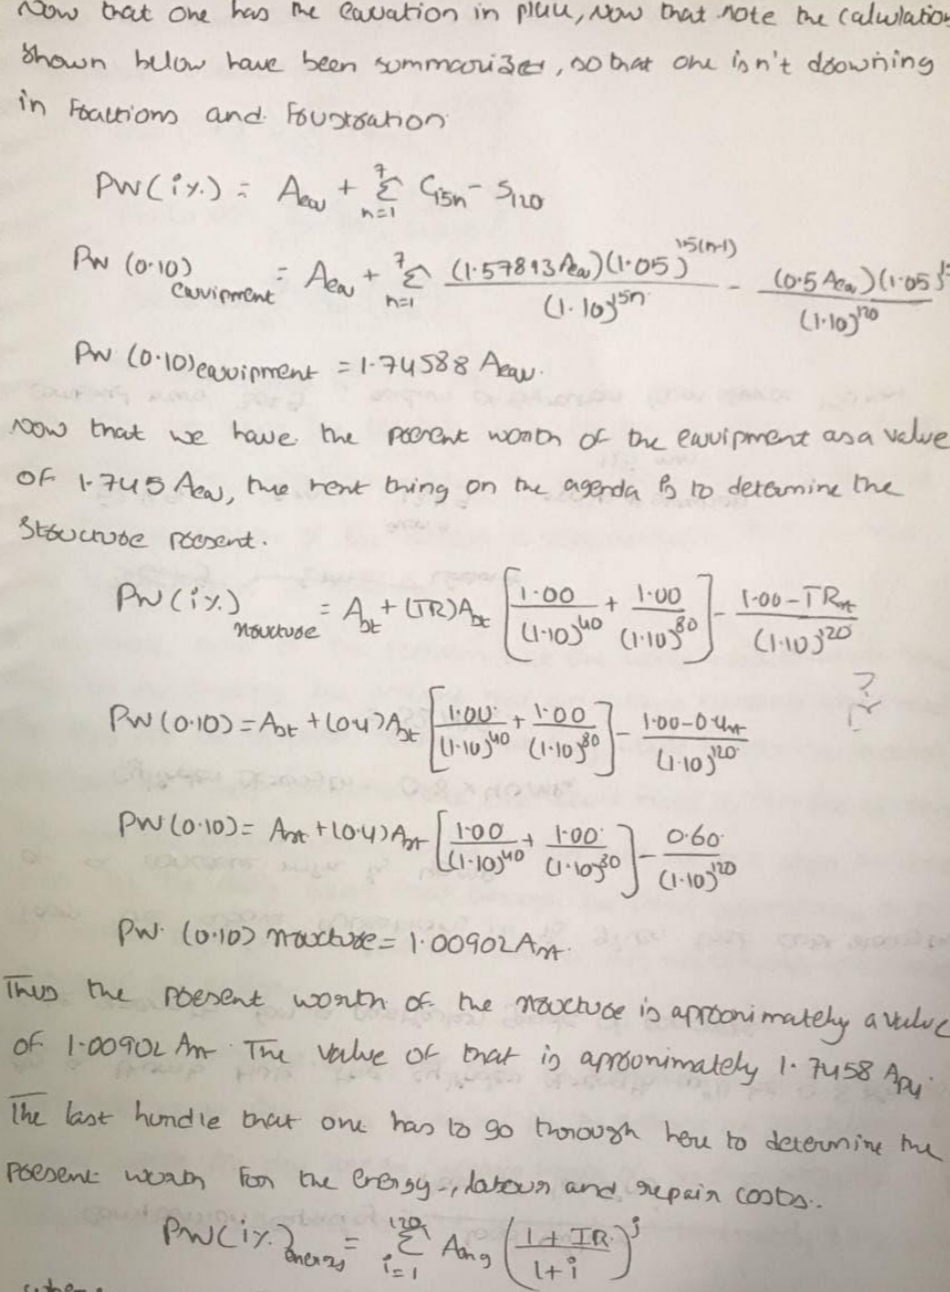 Now that one has the equation in place, Now that note the calculation
shown below have been summarized, so that one isn't drowning
in Fractions and Frustration
PW(i%) = A_equ + Σ_{n=1}^{7} C_{15n} - S_{120}
PW (0.10)_{equipment} = A_equ + Σ_{n=1}^{7} (1.57813 A_equ)(1.05)^{15(n-1)} / (1.10)^{15n} - (0.5 A_equ)(1.05) / (1.10)^{120}
PW (0.10)_{equipment} = 1.74588 A_equ.
Now that we have the present worth of the equipment as a value
of 1.745 A_equ, the next thing on the agenda is to determine the
Structure present.
PW(i%)_{structure} = A_st + (TR)A_st [1.00/(1.10)^{40} + 1.00/(1.10)^{80}] - 1.00-TR_st/(1.10)^{20}
?
PW(0.10) = A_st + (0.4)A_st [1.00/(1.10)^{40} + 1.00/(1.10)^{80}] - 1.00-0.4_st/(1.10)^{120}
PW(0.10) = A_st + (0.4)A_st [1.00/(1.10)^{40} + 1.00/(1.10)^{80}] - 0.60/(1.10)^{120}
PW (0.10) structure = 1.00902 A_st.
Thus the present worth of the structure is approximately a value
of 1.00902 A_st. The value of that is approximately 1.7458 A
The last hurdle that one has to go through here to determine the
present worth for the energy, labour and repair costs..
PW(i%)_{energy} = Σ_{i=1}^{120} A_eng (1+IR/1+i)^j